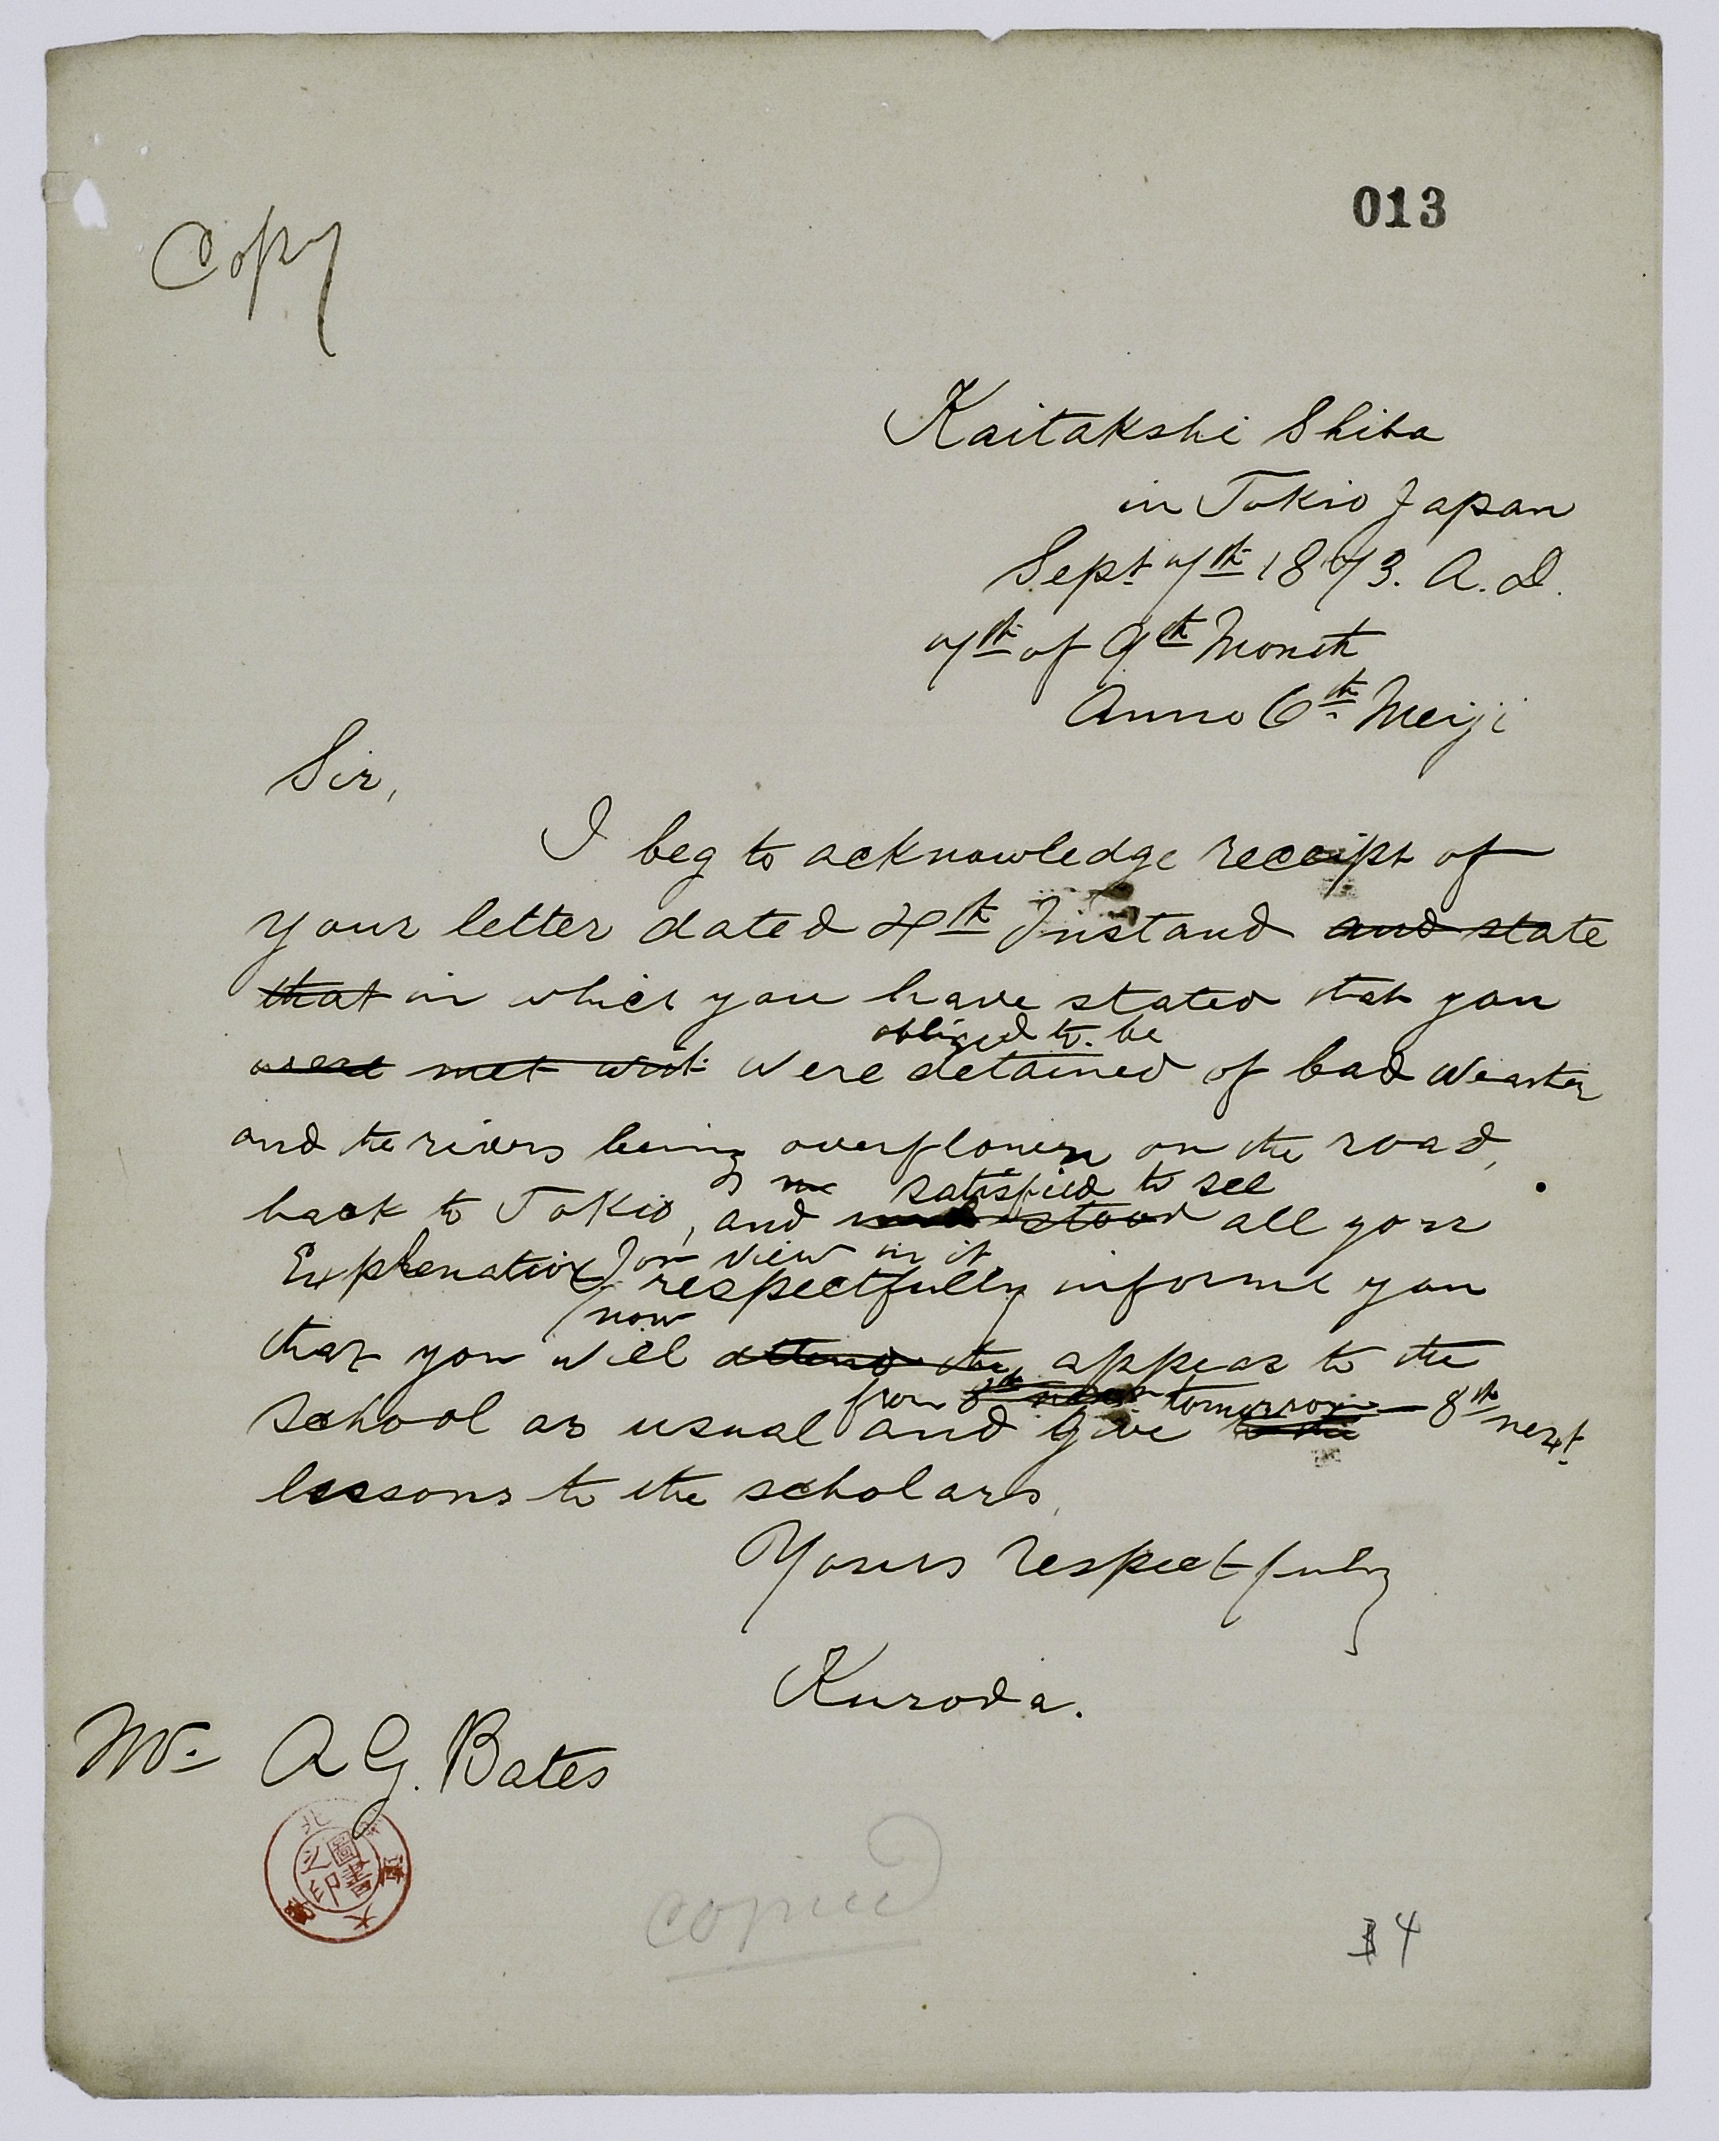 013
Copy
Kaitakshi Shiba
in Tokio Japan
Sept 7th 1873. A.D.
7th of 9th Month
Anno 6th Meiji
Sir,
I beg to acknowledge receipt of
your letter dated 4th Instand and state
that in which you have stated that you
obliged to be
were met with were detained of bad weather
and the rivers being overflowen on the road,
satisfied to see
back to Tokio, and understood all your
for view in it
Explenation respectfully informe you
now
that you will attend the appear to the
from 8th tomorrow 8th next
school as usual and give to the
lessons to the scholars.
Yours respectfully
Kuroda.
Mr. A G. Bates
北海道大學
圖書之印
copied
4